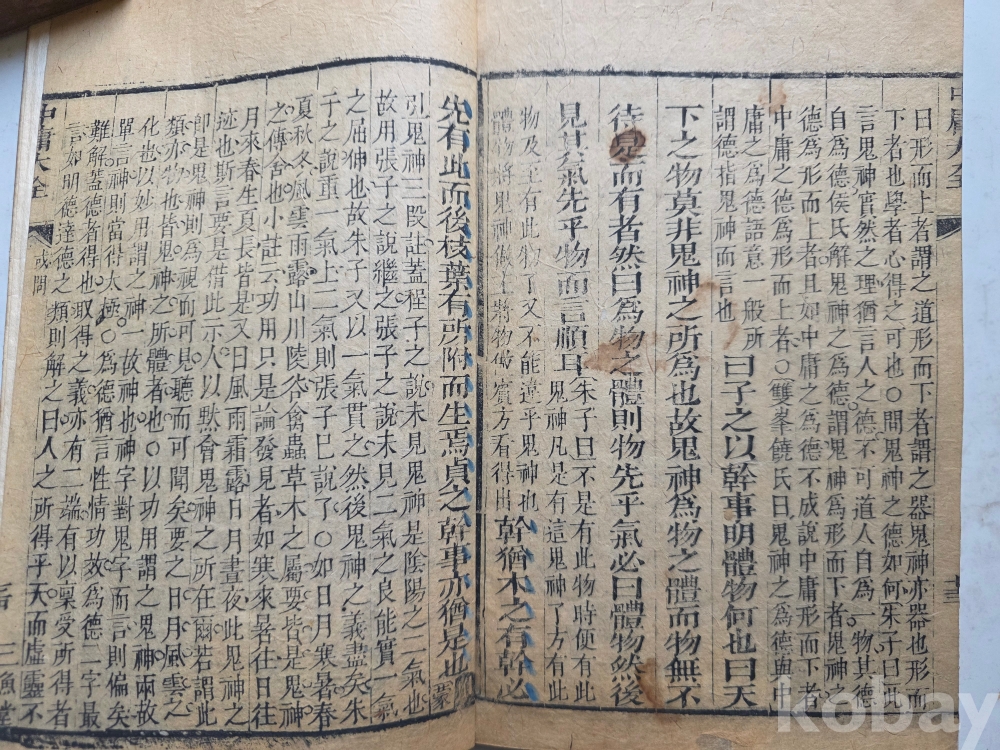 曰形而上者謂之道形而下者謂之器鬼神亦器也形而
下者也學者心得之可也○問鬼神之德如何朱子曰此
言鬼神實然之理猶言人之德不可道人自為一物其德
自為德侯氏解鬼神之為德謂鬼神為形而下者鬼神之
德為形而上者且如中庸之為德不成說中庸形而下者
中庸之德為形而上者○雙峯饒氏曰鬼神之為德與中
庸之為德語意一般所
謂德指鬼神而言也
曰子之以幹事明體物何也曰天
下之物莫非鬼神之所為也故鬼神為物之體而物無不
待是而有者然曰為物之體則物先乎氣必曰體物然後
見其氣先乎物而言順耳
朱子曰不是有此物時便有
此鬼神凡是有這鬼神了方有此
物及至有此物了又不能違乎鬼神也
體物將鬼神做主將物做賓方看得出
幹猶木之有幹必
先有此而後枝葉有所附而生焉貞之幹事亦猶是也
蒙
引鬼神三段註蓋程子之說未見鬼神是陰陽之二氣也
故用張子之說繼之張子之說未見二氣之良能實一氣
之屈伸也故朱子又以一氣貫之然後鬼神之義盡矣朱
子之說重一氣上二氣則張子已說了○如日月寒暑春
夏秋冬風雲雨露山川陵谷禽蟲草木之屬要皆是鬼神
之傳舍也小註云功用只是論發見者如寒來暑往日往
月來春生夏長皆是又曰風雨霜露日月晝夜此鬼神之
迹也斯言要是借此示人以默會鬼神之所在爾若謂此
即是鬼神則為視而可見聽而可聞矣要之日月風雲之
類亦物也皆鬼神之所體者也○以功用謂之鬼神兩故
化也以妙用謂之神一故神也神字對鬼字而言則偏矣
單言神則當得太極○為德猶言性情功效故為德二字最
難解蓋德者得也取得之義亦有二端有以稟受所得者
言如明德達德之類則解之曰人之所得乎天而虛靈不
中庸大全
或問
三魚堂
中庸大全
kobay